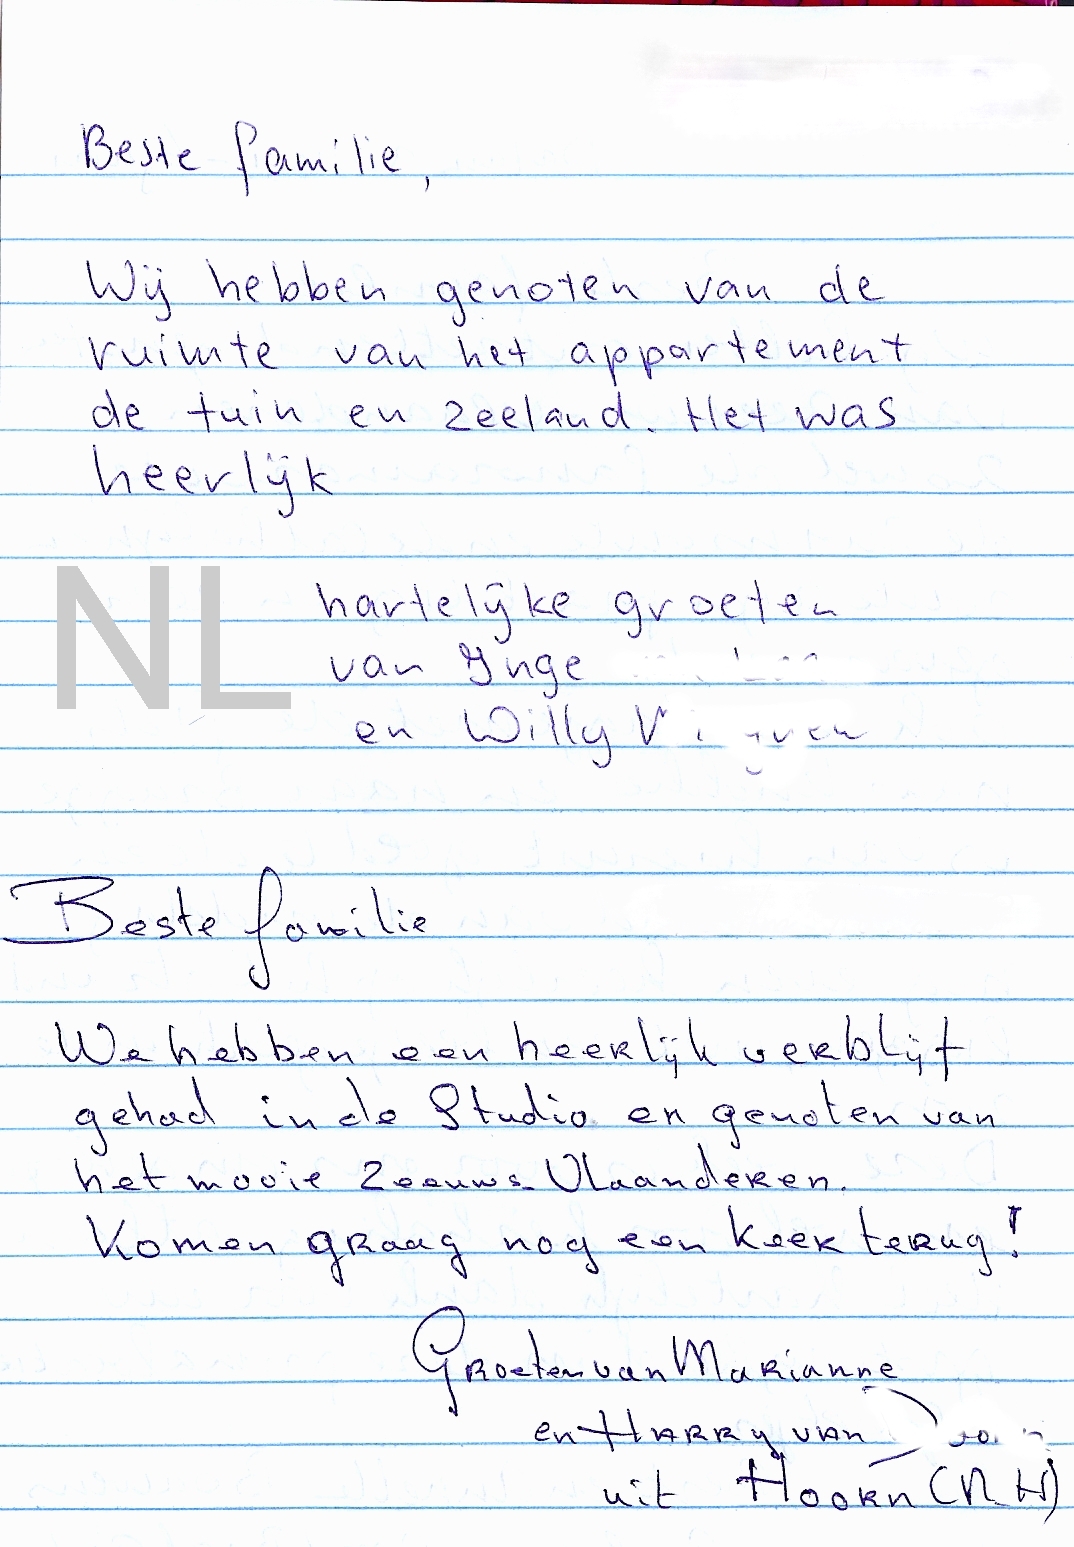 Beste familie,
Wij hebben genoten van de
ruimte van het appartement
de tuin en Zeeland. Het was
heerlijk
NL
hartelijke groeten
van Ynge
en Willy
Beste familie
We hebben een heerlijk verblijf
gehad in de Studio en genoten van
het mooie Zeeuws-Vlaanderen.
Komen graag nog een keer terug!
Groeten van Marianne
en Harry van
uit Hoorn (N H)